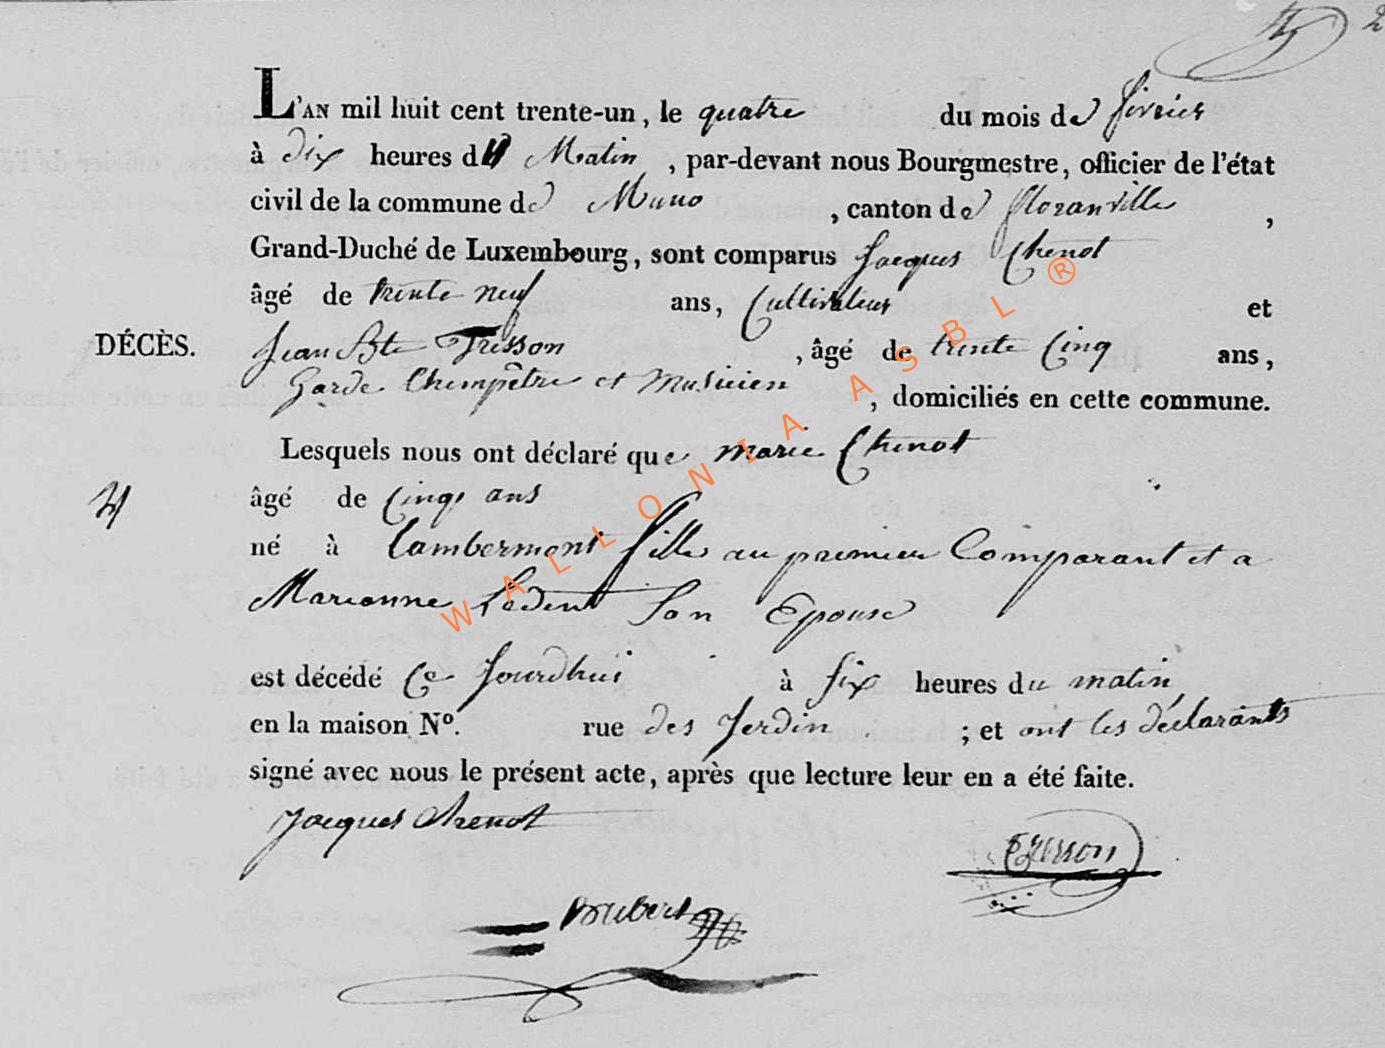 2
L'AN mil huit cent trente-un, le quatre du mois de fevrier
à dix heures du Matin, par-devant nous Bourgmestre, officier de l'état
civil de la commune de Muno, canton de floranville,
Grand-Duché de Luxembourg, sont comparus Jacques Chenot
âgé de trente neuf ans, Cultivateur et
DÉCÈS.
Jean Bte Frisson, âgé de trente Cinq ans,
Garde Champêtre et Musicien, domiciliés en cette commune.
Lesquels nous ont déclaré que marie Chenot
4
âgé de Cinq ans
né à Lambermont fille au premier Comparant et a
Marianne Ledent Son Epouse
est décédé Ce Jourdhui à six heures du matin
en la maison N°. rue des Jerdin ; et ont les déclarants
signé avec nous le présent acte, après que lecture leur en a été faite.
Jacques Chenot
Frisson
WALLONIA ASBL ®